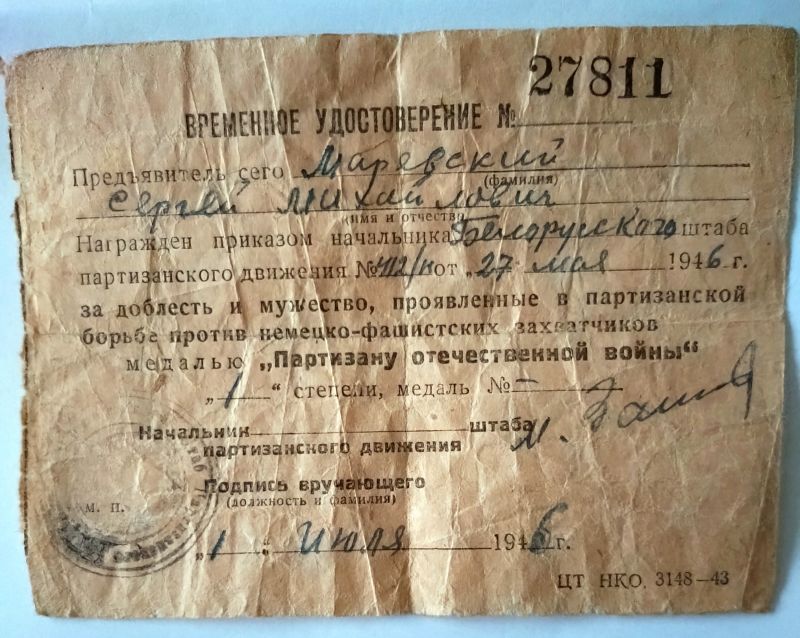 27811
ВРЕМЕННОЕ УДОСТОВЕРЕНИЕ №
Предъявитель сего Маревский
(фамилия)
Сергей Михайлович
(имя и отчество)
Награжден приказом начальника Белорусского штаба
партизанского движения № 112/н от „27 мая 1946 г.
за доблесть и мужество, проявленные в партизанской
борьбе против немецко-фашистских захватчиков
медалью „Партизану отечественной войны“
„1“ степени, медаль № –
Начальник штаба
партизанского движения
Подпись вручающего
(должность и фамилия)
М. П.
„1“ июля 1946 г.
ЦТ НКО. 3148–43